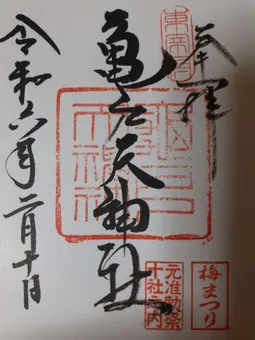 東宰府
奉拝
亀戸天神社
令和六年二月十日
梅まつり
元准勅祭
十社之内